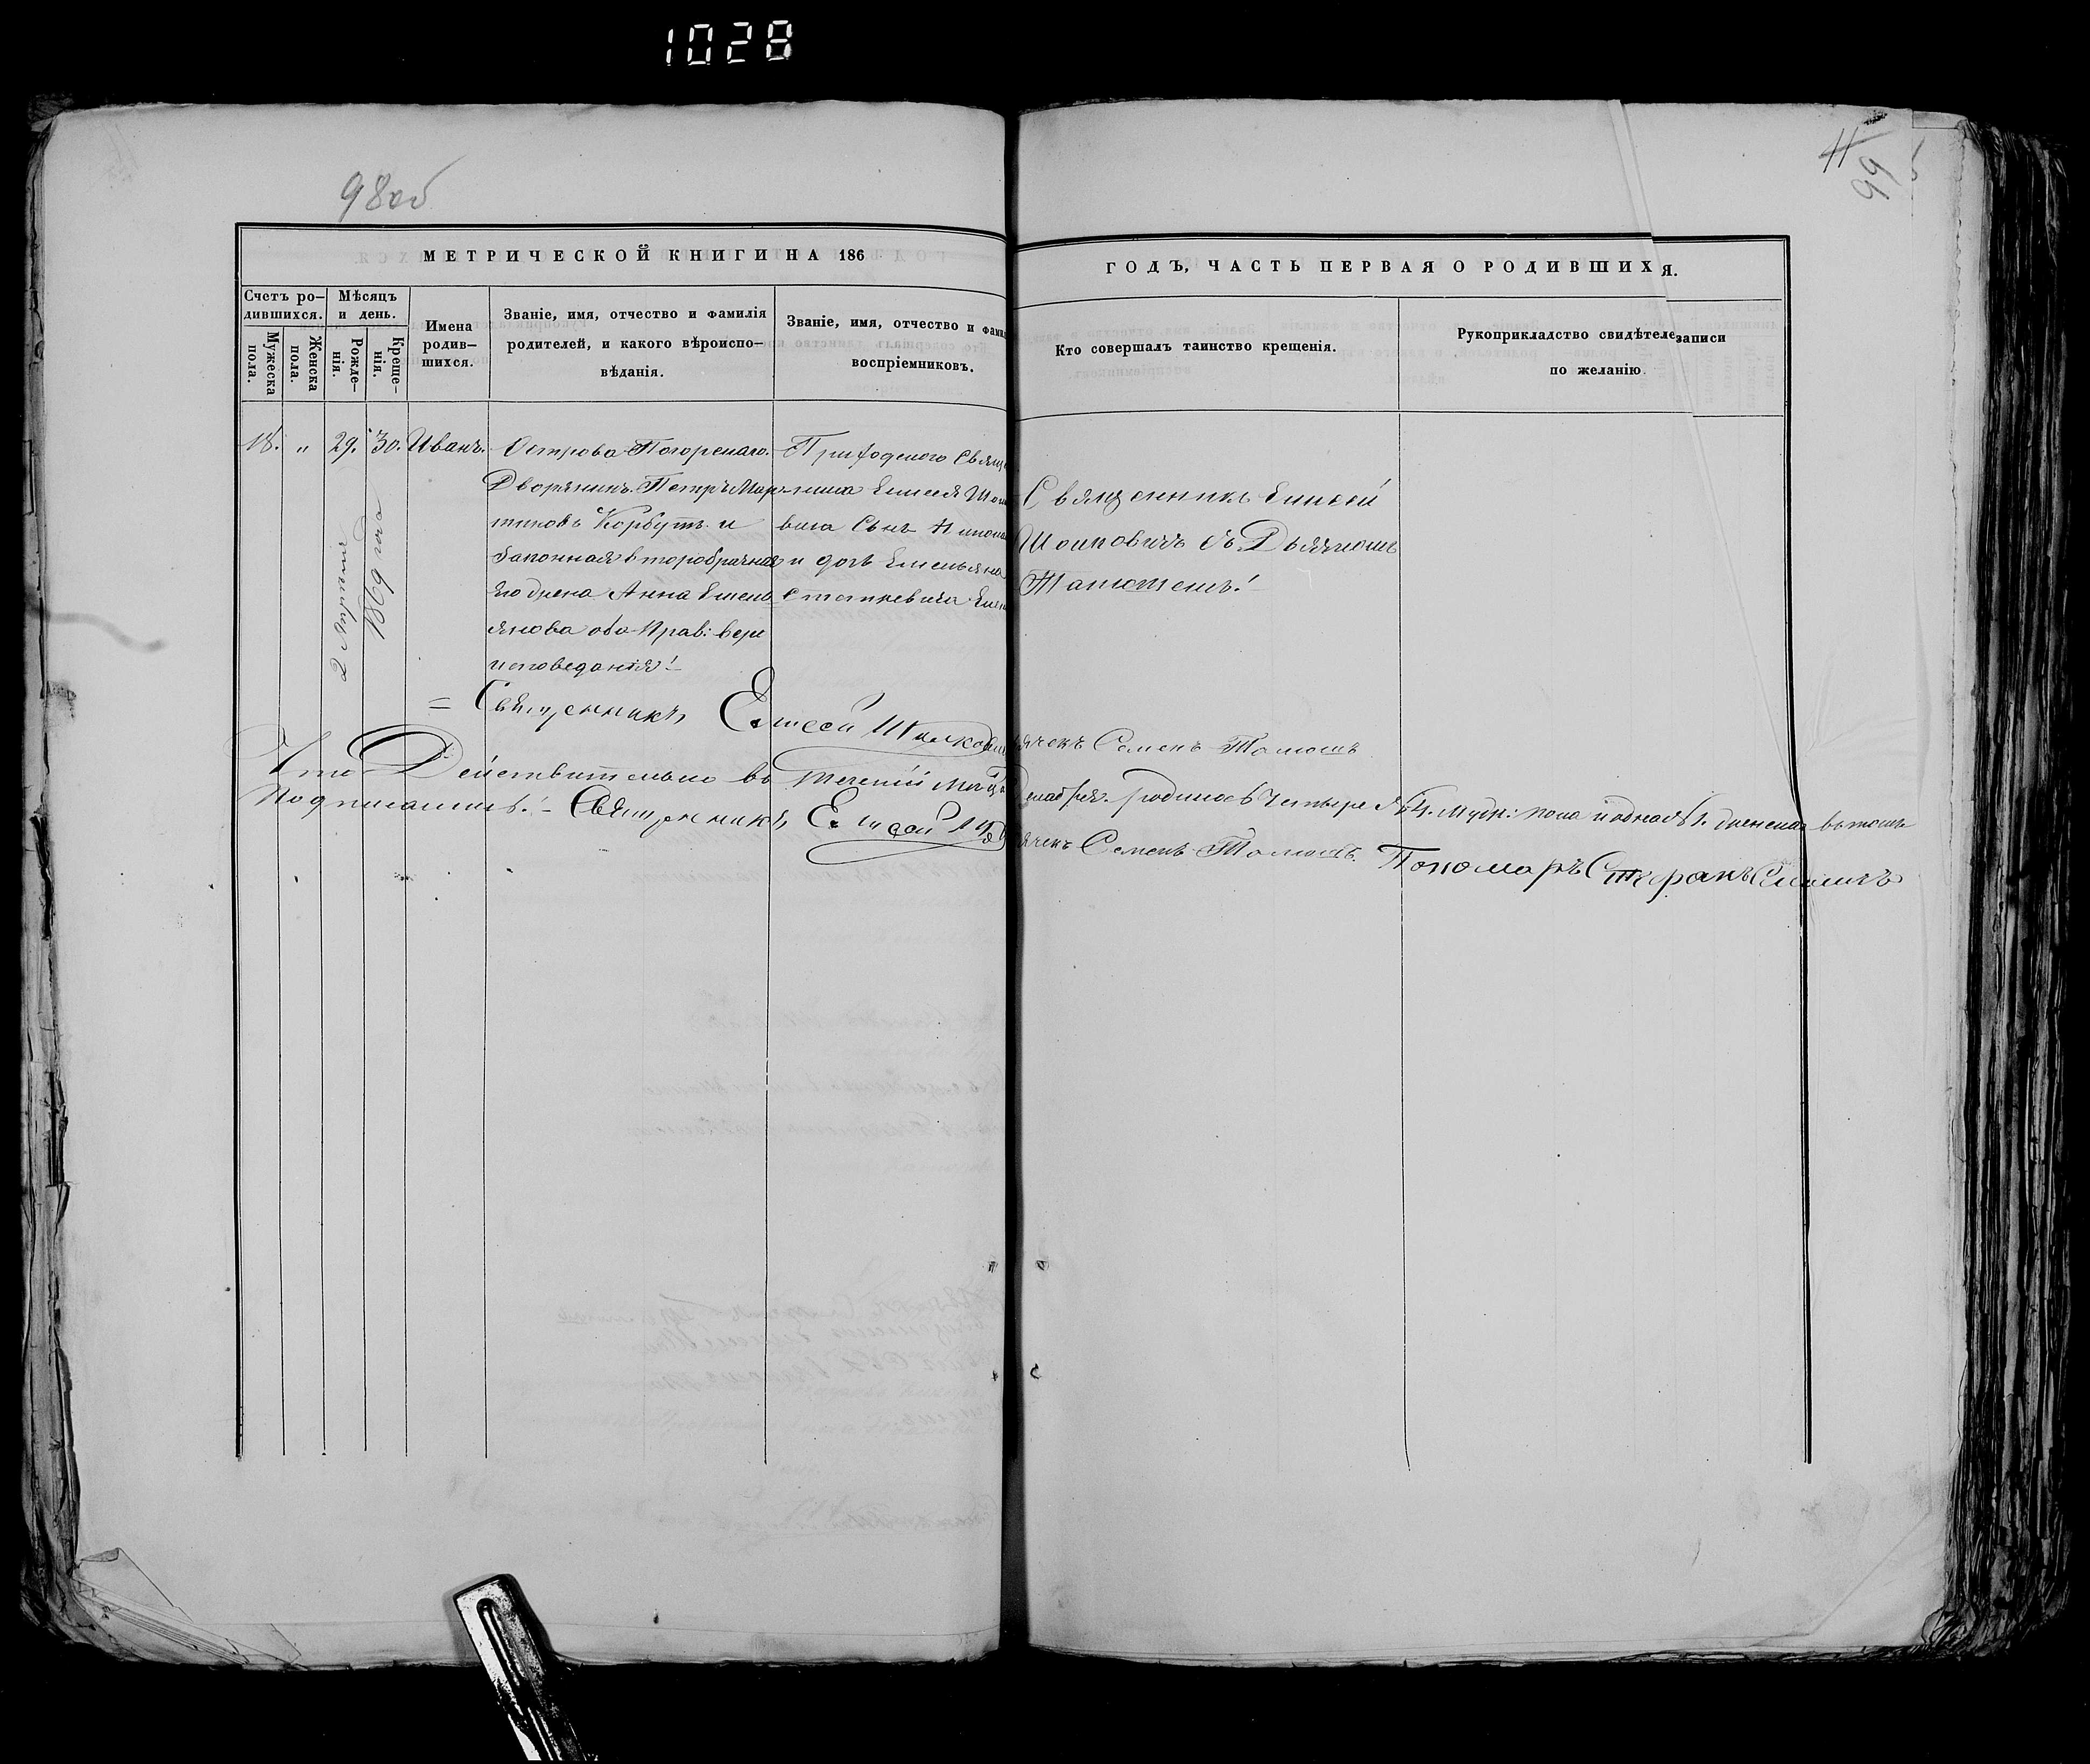 1028
98об
11
99
МЕТРИЧЕСКОЙ КНИГИ НА 186
ГОДЪ, ЧАСТЬ ПЕРВАЯ О РОДИВШИХЯ.
Счетъ ро-
дившихся.
Мужеска
пола.
Женска
пола.
Мѣсяцъ
и день.
Рожде-
нія.
Креще-
нія.
Имена
родив-
шихся.
Званіе, имя, отчество и фамилія
родителей, и какого вѣроиспо-
вѣданія.
Званіе, имя, отчество и фами
воспріемниковъ.
Кто совершалъ таинство крещенія.
Рукоприкладство свидѣтеле записи
по желанію
18. " 29. 30. Иванъ.
1869 года
Острова Погорелаго.
Дворянинъ Петръ Мар-
тиновъ Корбутъ и
Законная второбрачная
его жена Анна Емель
янова оба Прав: веро
исповеданія!
Приходского Свящ
ника Елисея
вича Сынъ
и дочь Емельяна
Станкевича
Священникъ Елисей
Шолковичъ съ Дьячкомъ
= Священникъ Елисей
Дьячекъ Семенъ
Что Действительно въ теченіи
родилось четыре 4. муж: пола и одна 1. женска въ томъ
Подписались!- Священникъ Елисей
Дьячекъ Семенъ
Пономаръ Стефанъ